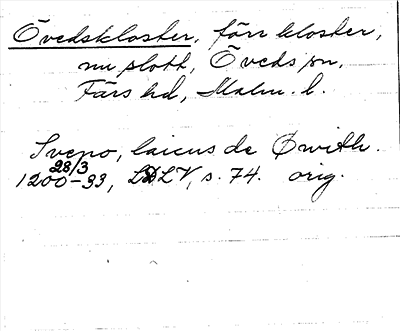 Övedskloster, förr kloster,
nu slott, Öveds sn,
Färs hd, Malm. l.
Sveno, laicus de Øwith.
28/3
1200-93, LDLV, s. 74. orig.